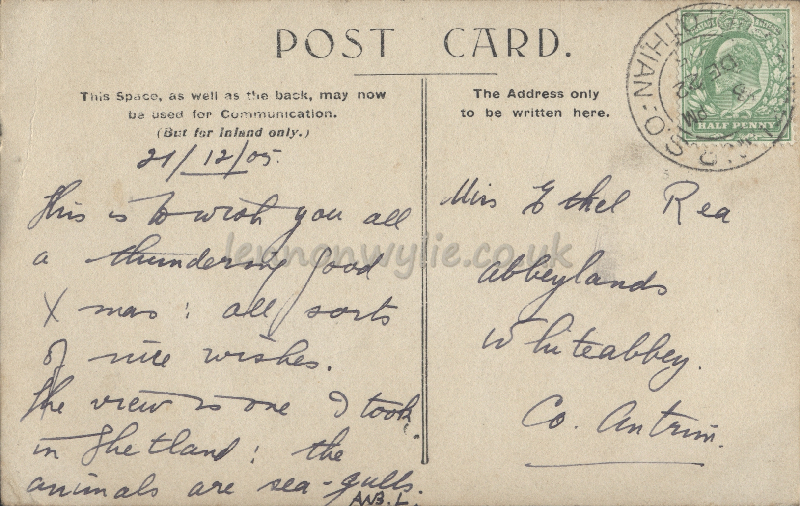 POST CARD.
This Space, as well as the back, may now
be used for Communication.
(But for Inland only.)
The Address only
to be written here.
HALF PENNY
21/12/05.
This is to wish you all
a thundering good
X mas : all sorts
of nice wishes.
The view is one I took
in Shetland : the
animals are sea-gulls.
Miss Ethel Rea
Abbeylands
Whiteabbey.
Co. Antrim.
lennonwylie.co.uk